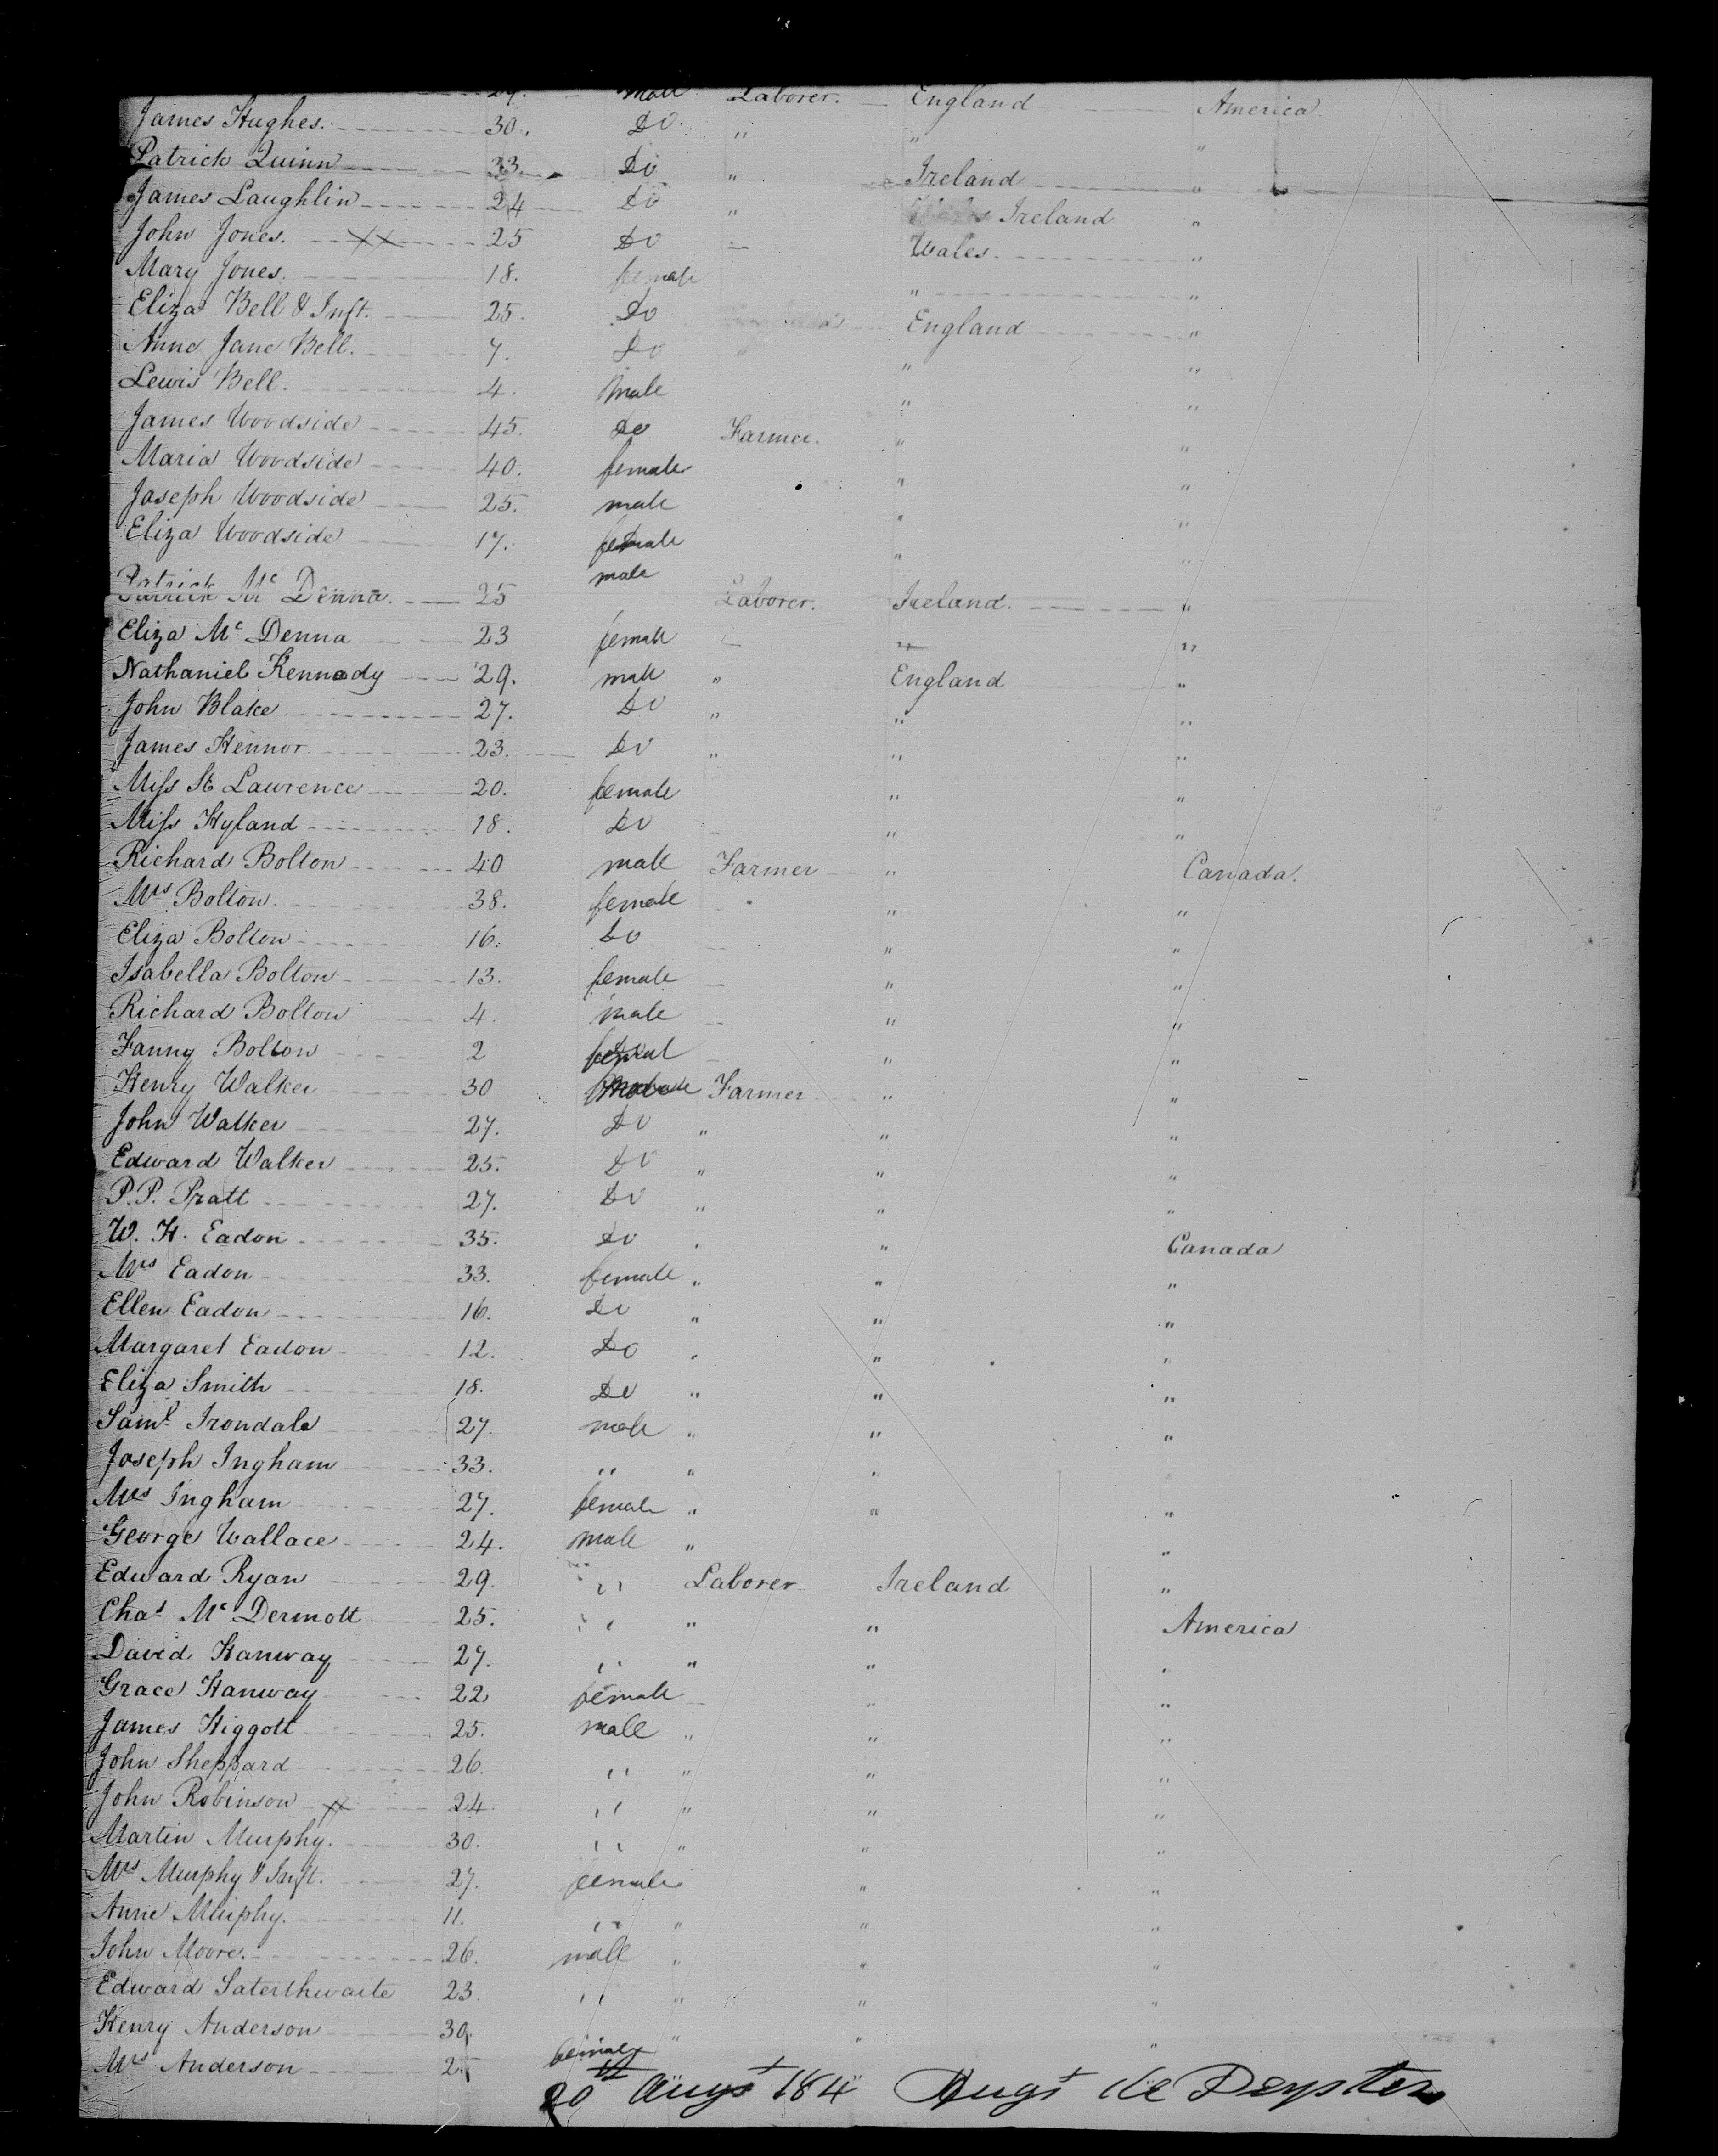 29. male Laborer. England America
James Hughes. 30. Do " " "
Patrick Quinn 33 Do " Ireland "
James Laughlin 24 Do " Ireland "
John Jones. XX 25 Do " Wales. "
Mary Jones. 18. female " "
Eliza Bell & Inft. 25. Do England "
Anne Jane Bell. 7. Do " " "
Lewis Bell. 4. male " "
James Woodside 45. Do Farmer. " "
Maria Woodside 40. female " "
Joseph Woodside 25. male " "
Eliza Woodside 17. female " "
Patrick Mc Denna. 25 male Laborer. Ireland. "
Eliza Mc Denna 23 female " "
Nathaniel Kennedy 29. male " England "
John Blake 27. Do " " "
James Hennor 23. Do " " "
Miss St Lawrence 20. female " "
Miss Hyland 18. Do " "
Richard Bolton 40 male Farmer " Canada.
Mrs Bolton. 38. female " "
Eliza Bolton 16. Do " "
Isabella Bolton 13. female " "
Richard Bolton 4. male " "
Fanny Bolton 2 " "
Henry Walker 30 male Farmer " "
John Walker 27. Do " " "
Edward Walker 25. Do " " "
P. P. Pratt 27. Do " " "
W. H. Eadon 35. Do " " Canada
Mrs Eadon 33. female " " "
Ellen Eadon 16. Do " " "
Margaret Eadon 12. Do " " "
Eliza Smith 18. Do " " "
Saml. Irondale 27. male " " "
Joseph Ingham 33. " " " "
Mrs Ingham 27. female " " "
George Wallace 24. male " "
Edward Ryan 29. " Laborer Ireland "
Chas Mc Dermott 25. " " " America
David Hanway 27. " " " "
Grace Hanway 22 female " "
James Higgott 25. male " " "
John Sheppard 26. " " " "
John Robinson XX 24. " " " "
Martin Murphy. 30. " " " "
Mrs Murphy & Inft. 27. female " "
Anne Murphy. 11. " " " "
John Moore. 26. male " " "
Edward Saterthwaite 23. " " " "
Henry Anderson 30. " " "
Mrs Anderson 25 female
20th Augst 184 Augt de Peyster